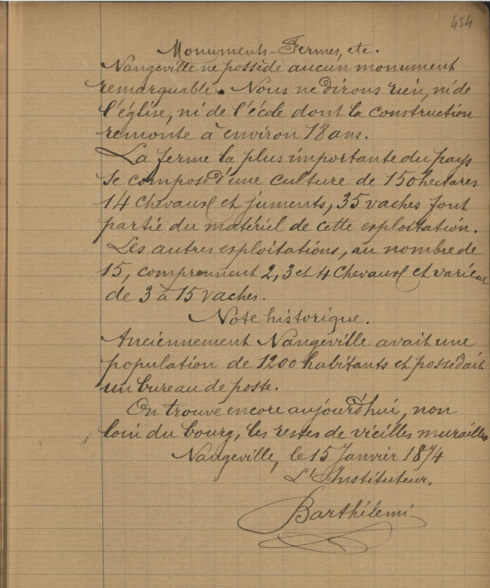 454
Monuments-Fermes, etc.
Nangeville ne possède aucun monument
remarquable. Nous ne dirons rien, ni de
l'église, ni de l'école dont la construction
remonte à environ 18 ans.
La ferme la plus importante du pays
se compose d'une culture de 150 hectares
14 chevaux et juments, 35 vaches font
partie du matériel de cette exploitation.
Les autres exploitations, au nombre de
15, comprennent 2, 3 et 4 chevaux et varient
de 3 à 15 vaches.
Note historique.
Anciennement Nangeville avait une
population de 1200 habitants et possédait
un bureau de poste.
On trouve encore aujourd'hui, non
loin du bourg, les restes de vieilles murailles
Nangeville, le 15 Janvier 1874
L'Instituteur,
Barthélemi